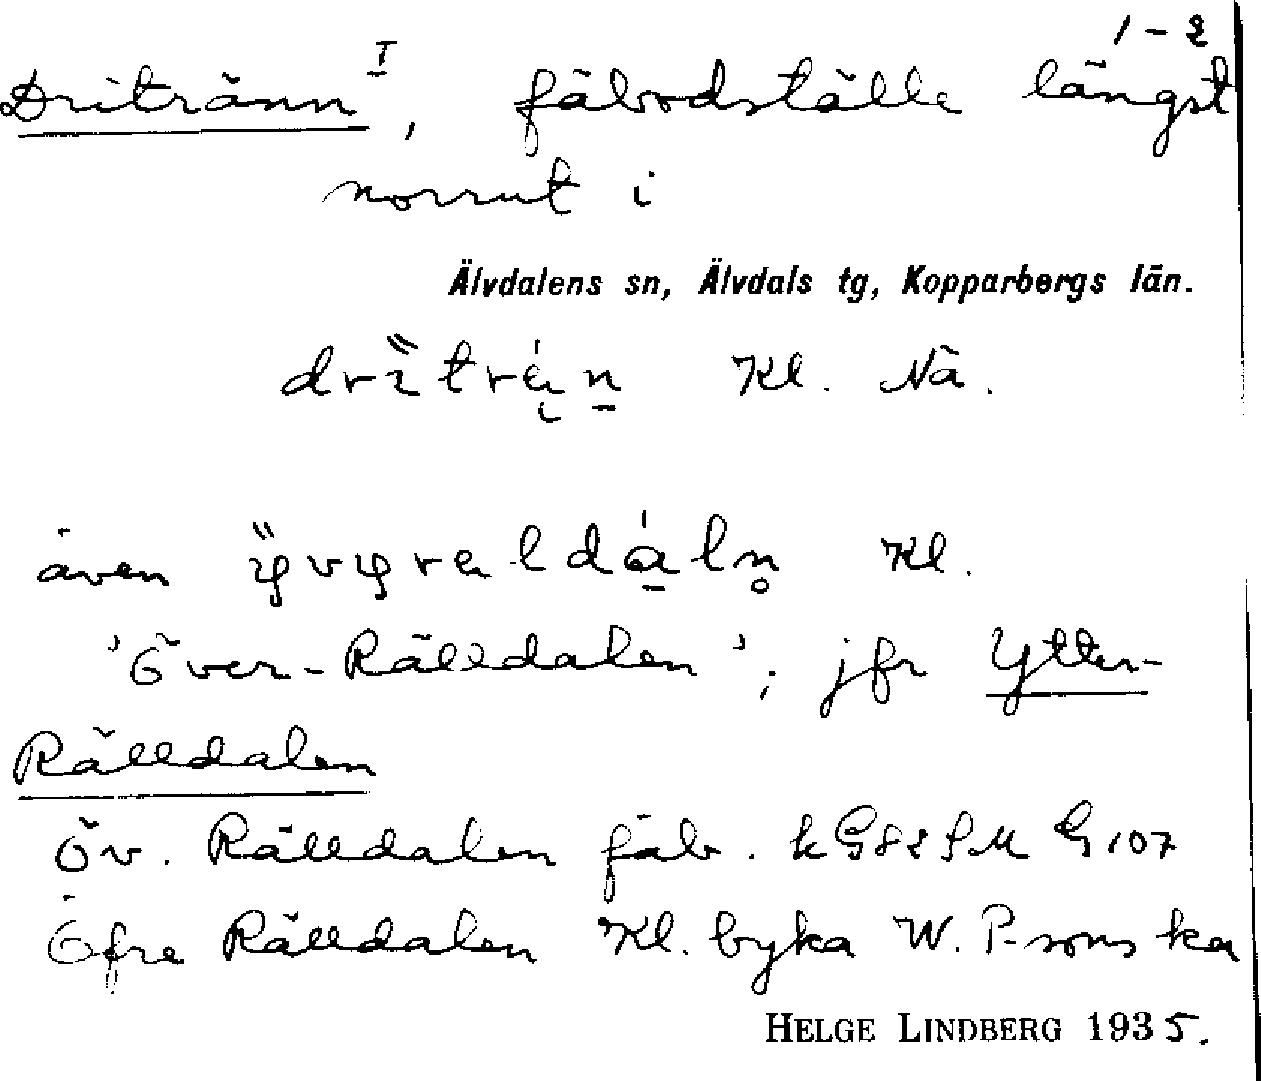 1-2
Dritränn I, fäbodställe längst
norrut i
Älvdalens sn, Älvdals tg, Kopparbergs län.
Kl. Nä.
även Kl.
'Över-Rälldalen'; jfr Ytter-
Rälldalen
Öv. Rälldalen fäb. kG82SM G107
Öfre Rälldalen Kl. byka W. P-sons ka
HELGE LINDBERG 1935.